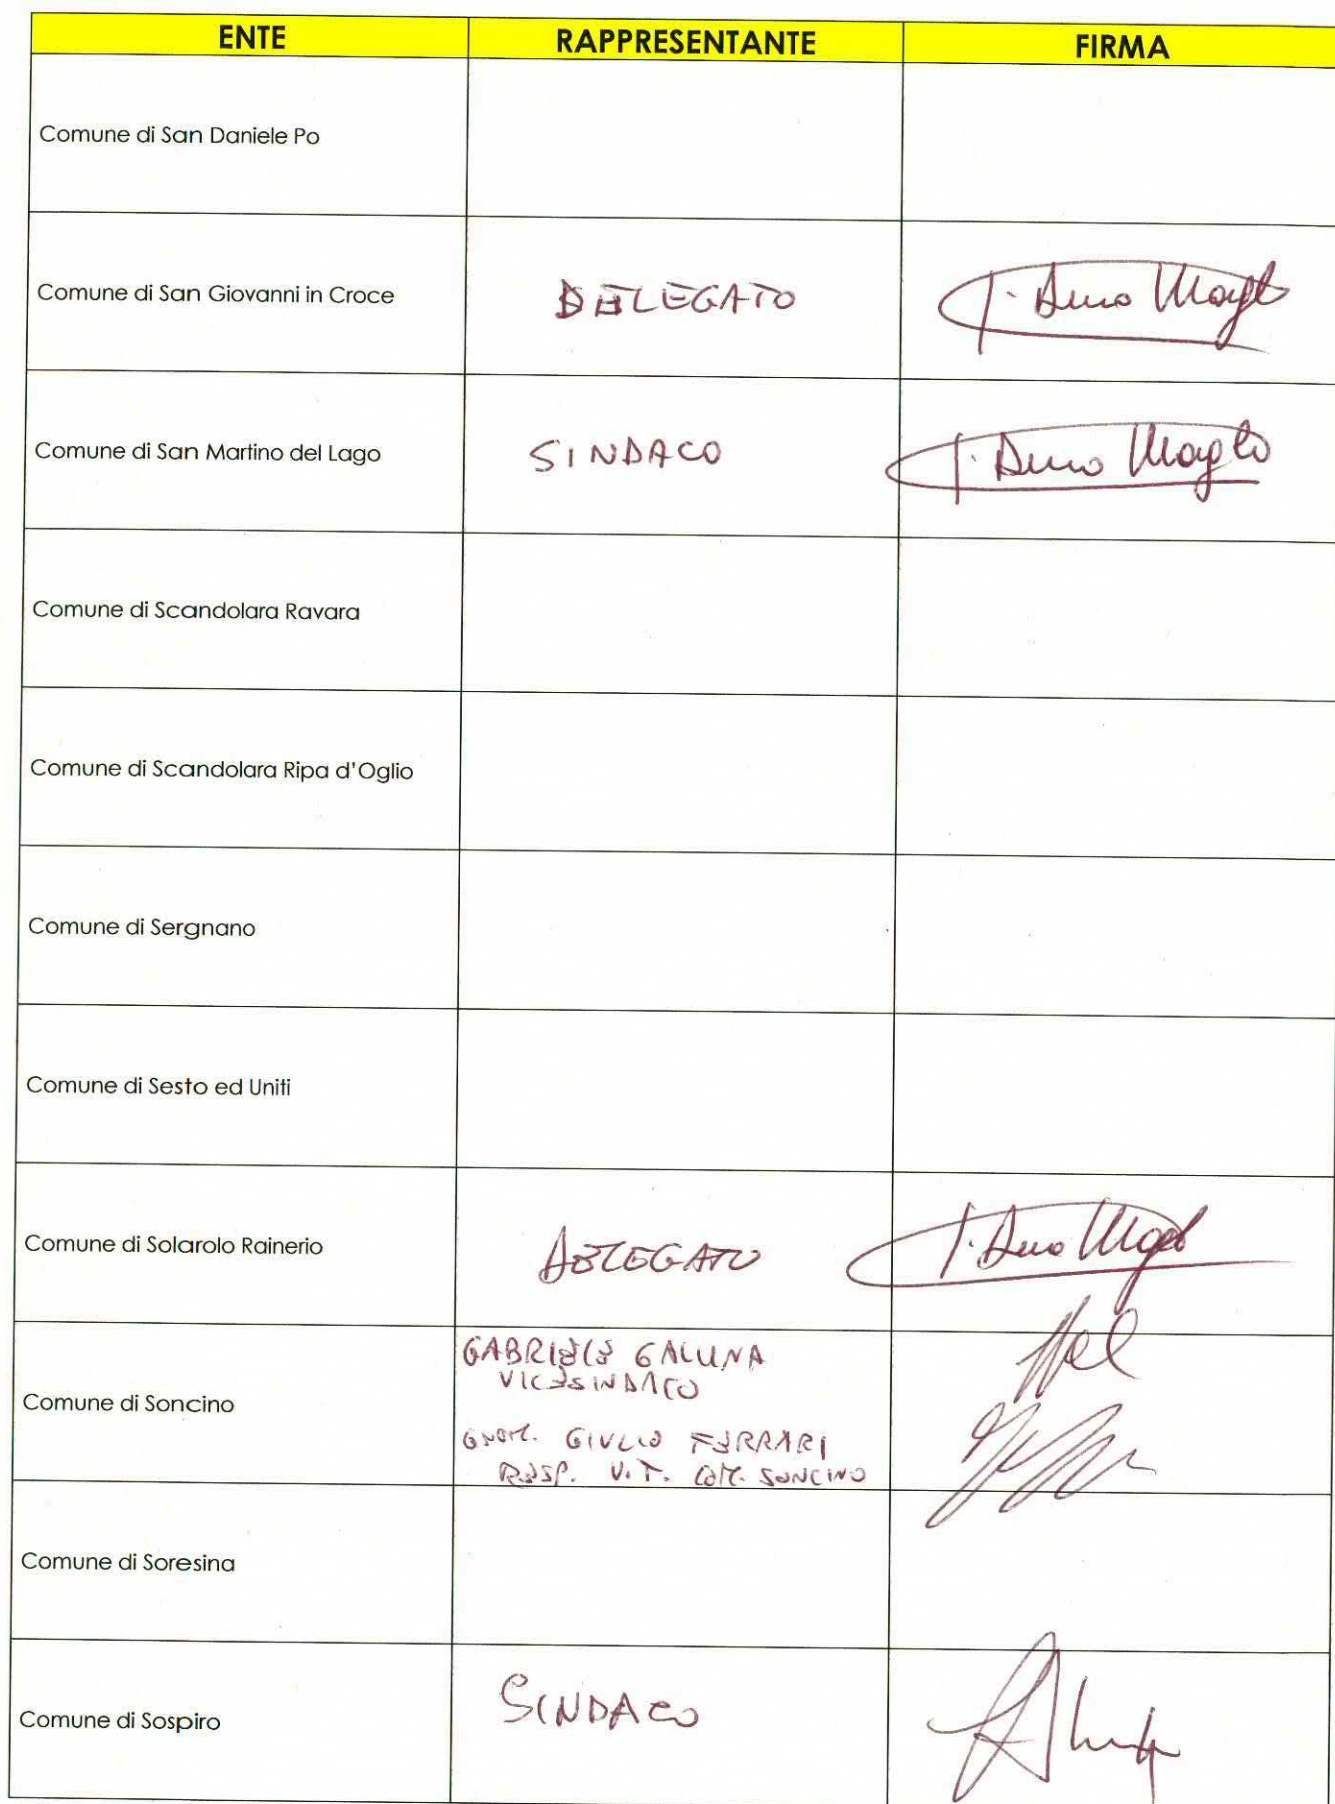 ENTE RAPPRESENTANTE FIRMA
Comune di San Daniele Po
Comune di San Giovanni in Croce DELEGATO
Comune di San Martino del Lago SINDACO
Comune di Scandolara Ravara
Comune di Scandolara Ripa d'Oglio
Comune di Sergnano
Comune di Sesto ed Uniti
Comune di Solarolo Rainerio DELEGATO
Comune di Soncino
GABRIELE GALLINA
VICESINDACO
GEOM. GIULIO FERRARI
RESP. U.T. COM. SONCINO
Comune di Soresina
Comune di Sospiro SINDACO